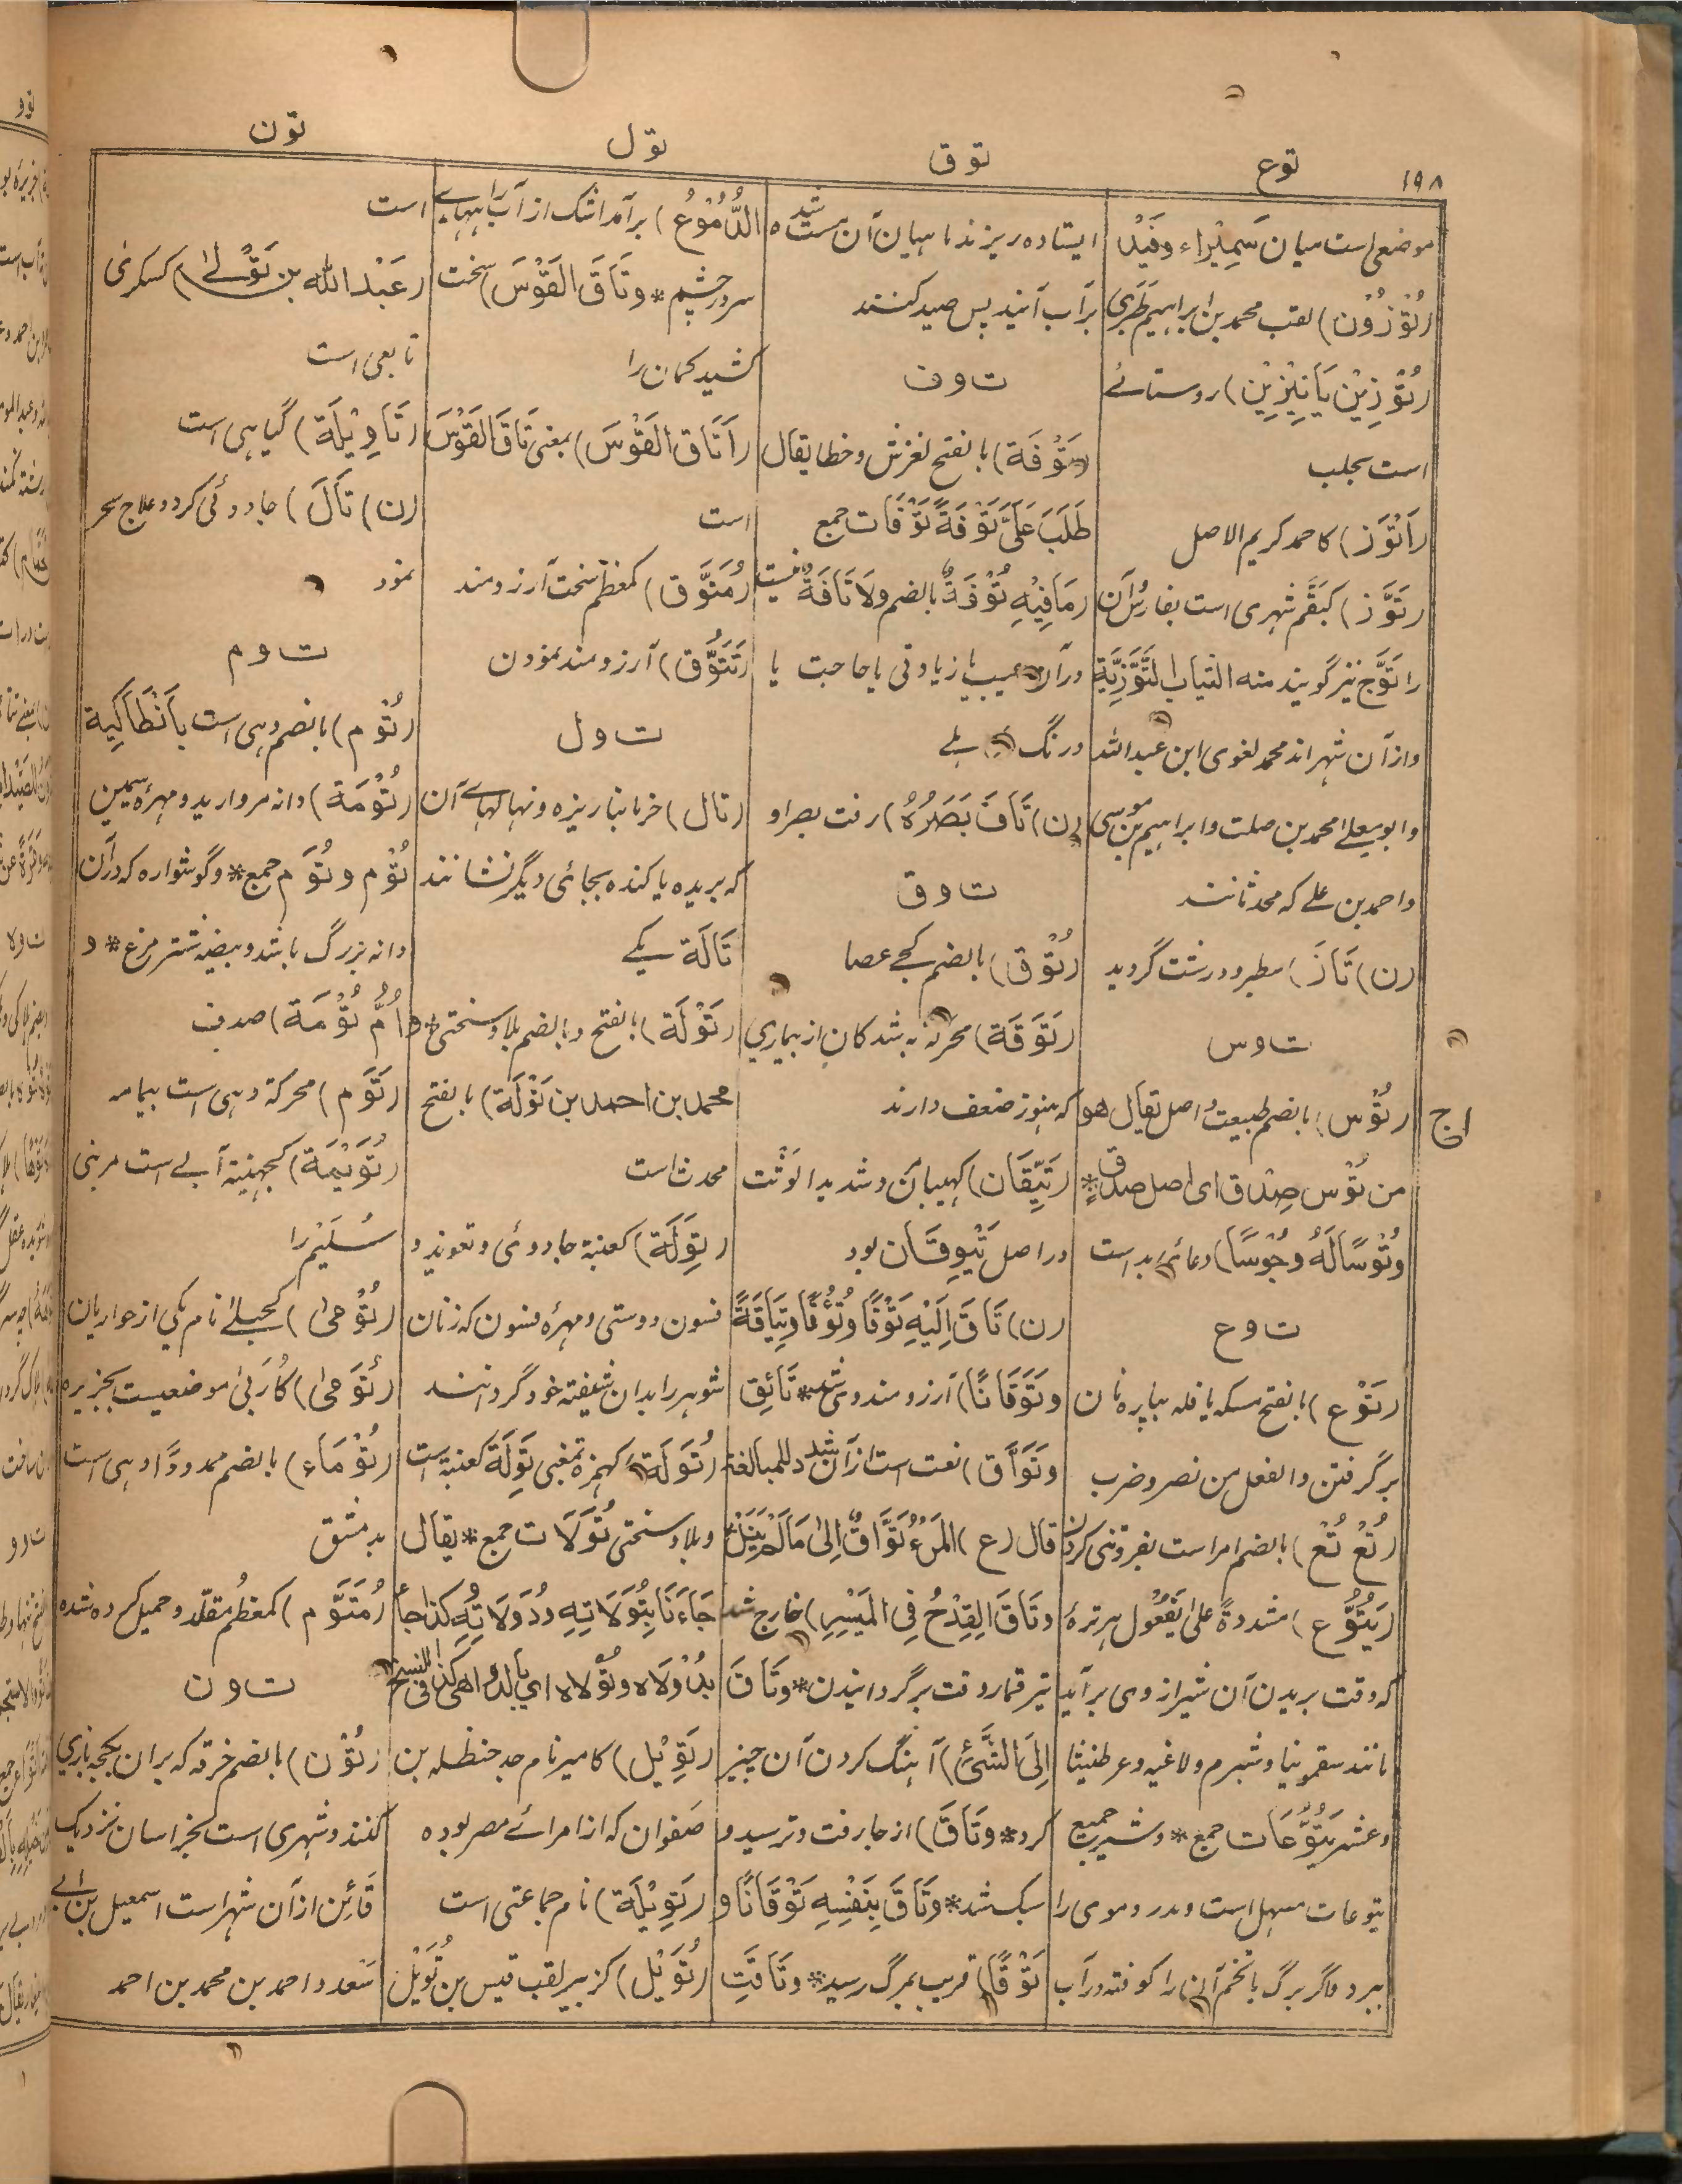 توع
توق
تول
تون
۱۹۸
موضعی است میان سَمِیْراء و فَیْد
(تُوْزُوْن) لقب محمد بن ابراہیم طَبَری
(تُوْزِیْن یَا تِیْزِیْن) روستائے
است بحلب
(اَتْوَز) کاحمد کریم الاصل
(تَوَّز) کبَقَّم شہری است بفارس آن
را تَوَّج نیز گویند منہ الثیاب التَّوَّزِیَّة
و از آن شہر اند محمد لغوی ابن عبداللہ
و ابو یعلے محمد بن صلت و ابراہیم بن موسی
و احمد بن علے کہ محدثانند
(ن) تَازَ) سطبر و درشت گردید
ت و س
(تُوْس) بالضم طبیعت و اصل یقال ھو
من تُوْس صِدْق ای اصل صدق *
وتُوْسًا لَهُ وجُوْسًا) دعائے بد است
ت و ع
(تَوْع) بالفتح مسکہ یا فلہ بپارہ نان
بر گرفتن والفعل من نصر و ضرب
(تُعْ تُعْ) بالضم امر است بفروتنی کردن
(یَتُّوْع) مشددةً علی یَفْعُول ہر ترہ
کہ وقت بریدن آن شیر از وی بر آید
مانند سقمونیا و شبرم و لاغیہ و عرطنیثا
و عشر یَتُّوْعَات جمع * و شیر جمیع
یتوعات مسہل است و مدر و موی را
ببرد و اگر برگ یا تخم آن را کوفتہ در آب
ایستادہ ریزند ماہیان آن مست شدہ
بر آب آیند پس صید کنند
ت و ف
(تَوْفَة) بالفتح لغزش و خطا یقال
طَلَبَ عَلَیَّ تَوْفَةً تَوْفَات جمع
(مَا فِیْهِ تُوْفَةٌ بالضم وَلَا تَافَةٌ نیست
در آن عیب یا زیادتی یا حاجت یا
درنگ
(ن) تَافَ بَصَرُهُ) رفت بصر او
ت و ق
(تُوْق) بالضم کجے عصا
(تَوَقَة) محرکہ بہ شدگان از بیماری
کہ ہنوز ضعف دارند
(تَیِّقَان) کہیبان و شدید الوثب
در اصل تَیْوِقَان بود
(ن) تَاقَ اِلَیْهِ تَوْقًا وتُؤُقًا وتِیَاقَةً
وتَوَقَانًا) آرزومند وی شد * تَائِق
وتَوَّاق) نعت است از آن شد د للمبالغة
قال (ع) المَرْءُ تَوَّاقٌ اِلیٰ مَا لَمْ یَنَلْ *
وتَاقَ القِدْحُ فِی المَیْسِرِ) خارج شد
تیر قمار وقت برگردانیدن * وتَاقَ
اِلَی الشَّئ) آہنگ کردن آن چیز
کرد * وتَاقَ) از جا رفت و ترسید و
سبک شد * وتَاقَ بِنَفْسِهِ تَوْقَانًا و
تَوْقًا) قریب بمرگ رسید * وتَاقَتِ
الدُّمُوْعُ) برآمد اشک از آب راہہاے
سر در چشم * وتَاقَ القَوْسَ) سخت
کشید کمان را
(اَتَاقَ القَوْسَ) بمعنی تَاقَ القَوْسَ
است
(مُتَوَّق) کمعظم سخت آرزومند
(تَتَوُّق) آرزومند نمودن
ت و ل
(تال) خرما بنا ریزہ و نہالہاے آن
کہ بریدہ یا کندہ بجائی دیگر نشانند
تَالَة یکے
(تَوْلَة) بالفتح و بالضم بلا و سختی * و
محمد بن احمد بن تَوْلَة) بالفتح
محدث است
(تِوَلَة) کعنبة جادوئی و تعویذ و
فسون دوستی و مہرۂ فسون کہ زنان
شوہر را بدان شیفتہ خود گردانند
(تُوَلَة) کہمزہ بمعنی تِوَلَة کعنبة است
و بلا و سختی تُوَلَات جمع * یقال
جَاءَنَا بِتُوَلَاتِهِ ودُوَلَاتِهِ کذا جا
بِدُوْلَاہ و تُوْلَاہ اي بالدواھی کذا فی النسخ
(تَوِیْل) کامیر نام جد حنظلہ بن
صَفوان کہ از امرائے مصر بودہ
(تَوِیْلَة) نام جماعتی است
(تُوَیْل) کزبیر لقب قیس بن تُوَیْل
است
(عَبْدالله بن تَوْلےٰ) کسکریٰ
تابعی است
(تَاوِیْلَة) گیاہی است
(ن) تَالَ) جادوئی کرد و علاج سحر
نمود
ت و م
(تُوْم) بالضم دہی است بأَنْطَاکِیة
(تُوْمَة) دانہ مروارید و مہرۂ سیمین
تُوْم و تُوَم جمع * و گوشوارہ کہ در آن
دانہ بزرگ باشد و بیضہ شتر مرغ * و
اُمُّ تُوْمَة) صدف
(تَوَم) محرکة دہی است بیمامہ
(تُوَیْمَة) کجہینة آبے است مر بنی
سُلَیْم را
(تُوْمیٰ) کحبلےٰ نام یکی از حواریان
(تُوَمیٰ) کاُرَبیٰ موضعیست بجزیرہ
(تُوْمَاء) بالضم ممدودًا دہی است
بدمشق
(مُتَوَّم) کمعظم مقلّد و حمیل کردہ شدہ
ت و ن
(تُوْن) بالضم خرقہ کہ بران بکجہ بازی
کنند و شہری است بخراسان نزدیک
قَائِن از آن شہر است اسمعیل بن ابی
سَعد و احمد بن محمد بن احمد
اج